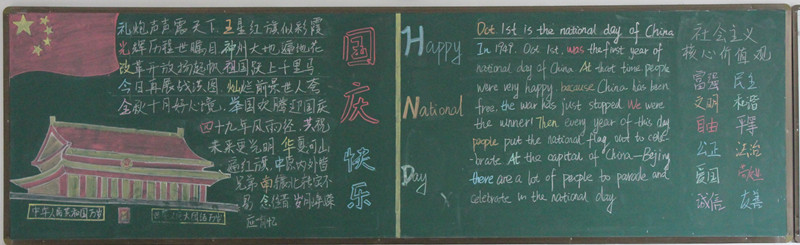 礼炮声声震天下 五星红旗似彩霞
光辉历程世瞩目 神州大地遍地花
改革开放扬起帆 祖国跃上十里马
今日再展战洪图 灿烂前景世人夸
金秋十月好心境 举国欢腾迎国庆
四十九年风雨径
未来更光明
红旗
国庆快乐
中华人民共和国万岁
Happy
National
Day
Oct 1st is the national day of China
In 1949. Oct 1st, was the first year of
national day of China At that time people
were very happy, because China has been
free. the war has just stopped We were
the winner! Then every year of this day
people put the national flag out to cele-
brate At the capital of China—Bejing
there are a lot of people to parade and
celebrate in the national day
社会主义
核心价值观
富强 民主
文明 和谐
自由 平等
公正 法治
爱国 敬业
诚信 友善